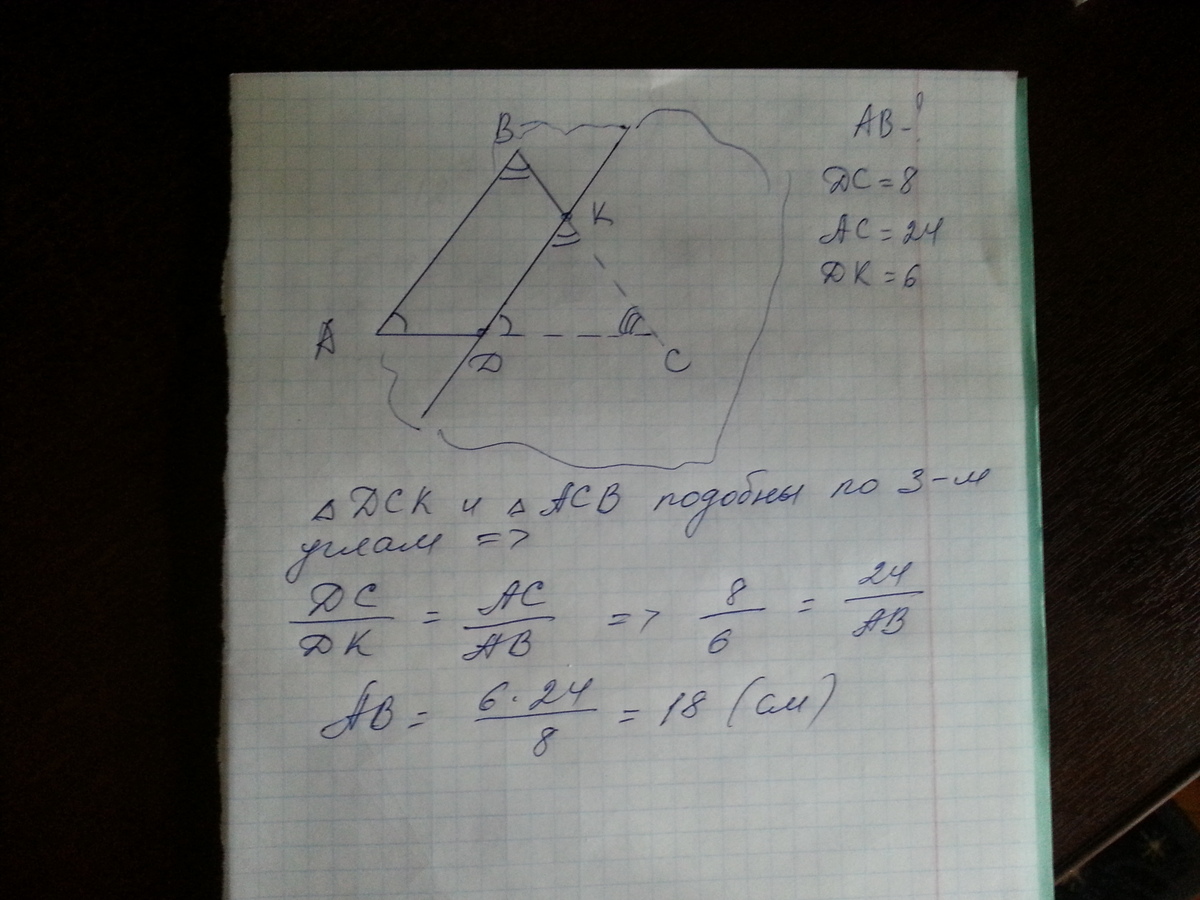 B
K
A
D
C
AB-?
DC=8
AC=24
DK=6
△DCK и △ACB подобны по 3-м
углам =>
DC/DK = AC/AB => 8/6 = 24/AB
AB = 6·24/8 = 18 (см)